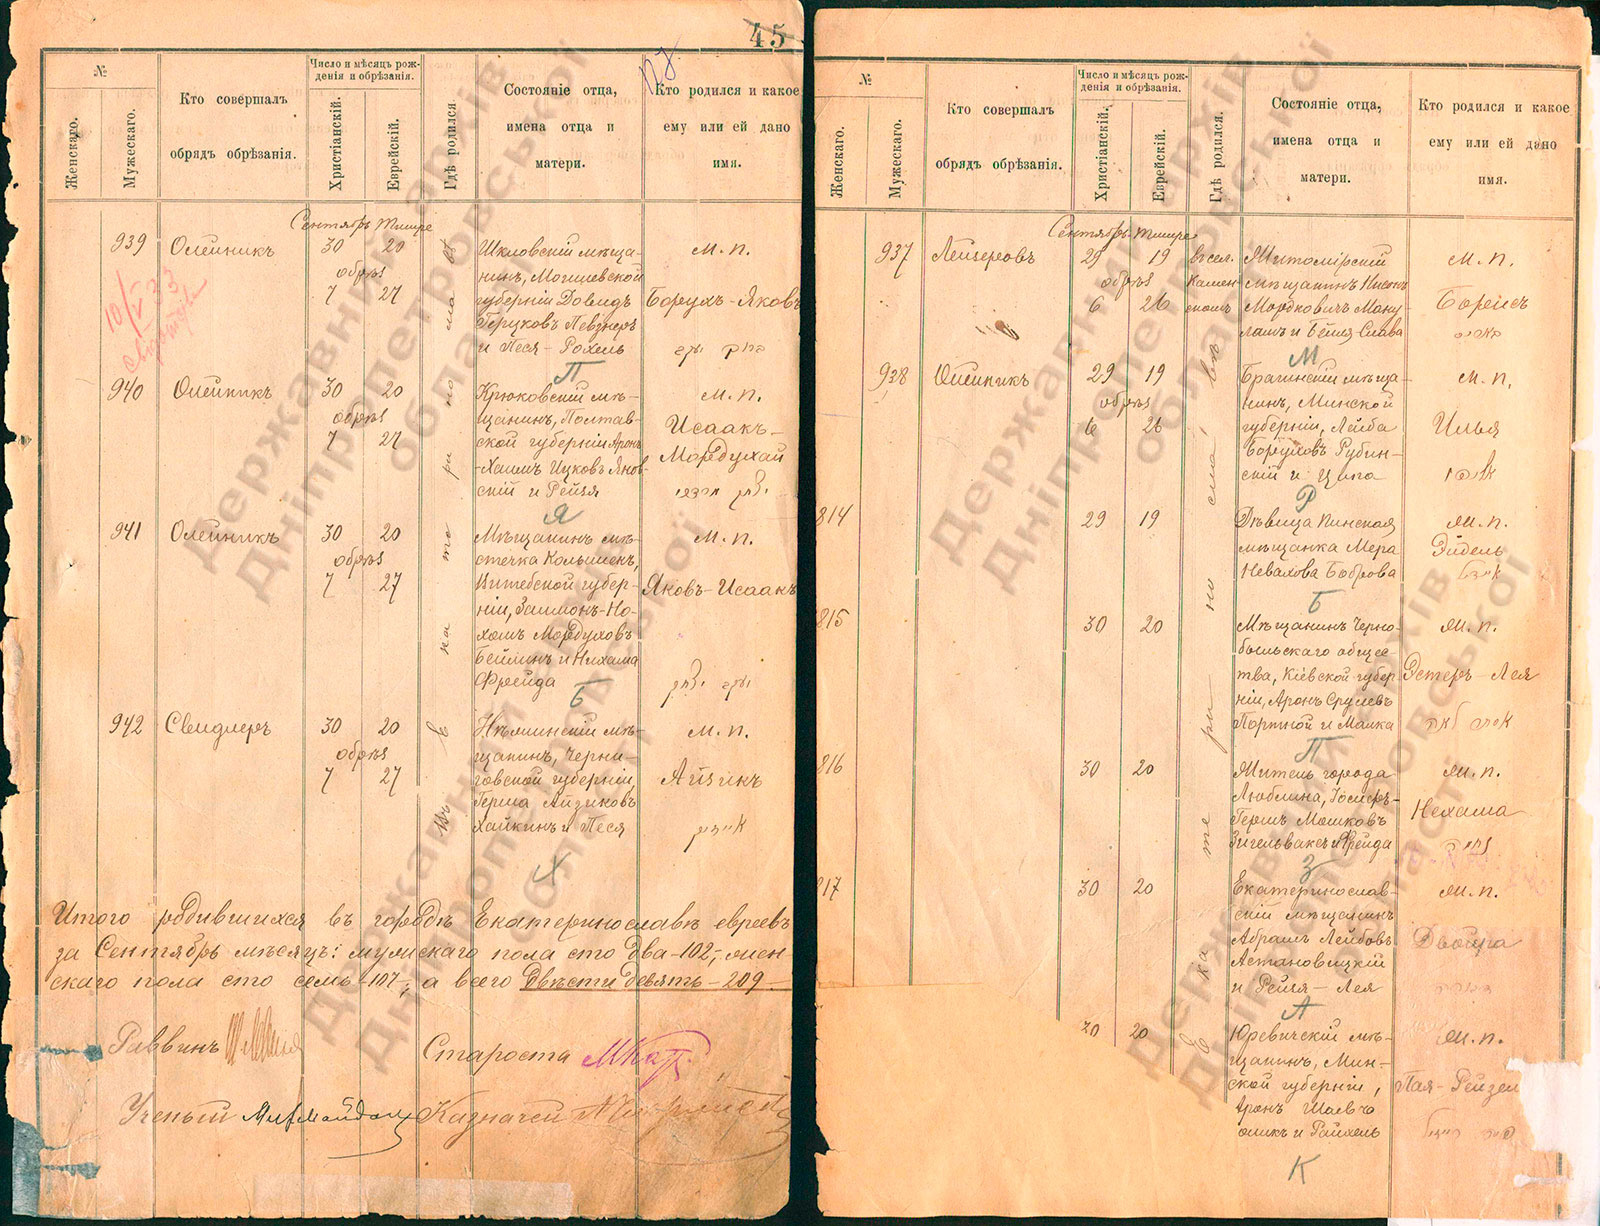 45
№
Женскаго.
Мужескаго.
Кто совершалъ
обрядъ обрѣзанія.
Число и мѣсяцъ рож-
денія и обрѣзанія.
Христіанскій.
Еврейскій.
Гдѣ родился.
Состояніе отца,
имена отца и
матери.
Кто родился и какое
ему или ей дано
имя.
Сентябрь Тишре
939 Олейникъ 30 20
обрѣз
7 27
Шкловскій мѣща-
нинъ, Могилевской
губерніи Довидъ
Герцковъ Певзнеръ
и Песя-Рохель
м. п.
Борухъ-Яковъ
П
940 Олейникъ 30 20
обрѣз
7 27
Крюковскій мѣ-
щанинъ, Полтав-
ской губерніи Аронъ
-Хаимъ Ицковъ Янов-
скій и Рейзя
м. п.
Исаакъ-
Мордухай
Я
941 Олейникъ 30 20
обрѣз
7 27
Мѣщанинъ мѣ-
стечка Колышекъ,
Витебской губер-
ніи, Залмонъ-Но-
хомъ Мордуховъ
Бейлинъ и Нихама
Фрейда
м. п.
Яковъ-Исаакъ
יעקב יצחק
Б
942 Свидлеръ 30 20
обрѣз
7 27
щанинъ, Черни-
говской губерніи,
Герша Айзиковъ
Хайкинъ и Песя
м. п.
Айзикъ
אייזיק
Х
Итого родившихся въ городѣ Екатеринославѣ евреевъ
за Сентябрь мѣсяцъ: мужскаго пола сто два-102, жен
скаго пола сто семь-107, а всего Двѣсти девять-209
Раввинъ
Староста
Ученый
Казначей
№
Женскаго.
Мужескаго.
Кто совершалъ
обрядъ обрѣзанія.
Число и мѣсяцъ рож-
денія и обрѣзанія.
Христіанскій.
Еврейскій.
Гдѣ родился.
Состояніе отца,
имена отца и
матери.
Кто родился и какое
ему или ей дано
имя.
Сентябрь Тишре
937 Лейзеровъ 29 19
обрѣз
6 26
въ сел.
Камен
скомъ
Житомірскій
мѣщанинъ Нисонъ
Мордковичъ Ману
ламъ и Бейля Слава
м. п.
Борисъ
М
938 Олейникъ 29 19
обрѣз
6 26
Брагинскій мѣща-
нинъ, Минской
губерніи, Лейба
Боруховъ Рубин-
скій и Ципа
м. п.
Илья
Р
814 29 19
Дѣвица Пинская
мѣщанка Мера
Невахова Боброва
ж. п.
Эйдель
איידל
Б
815 30 20
Мѣщанинъ Черно-
быльскаго общес-
тва, Кіевской губер
ніи, Аронъ Срулевъ
Портной и Малка
ж. п.
Эстеръ-Лея
אסתר לאה
П
816 30 20
Житель города
Люблина, Іосиръ-
Гершъ Мошковъ
Зигельваксъ и Фрейда
ж. п.
Нехама
נחמה
З
817 30 20
Екатеринослав-
скій мѣщанинъ
Абрамъ Лейбовъ
Астановицкій
и Рейзя-Лея
ж. п.
Двойра
А
30 20
Юревичскій мѣ-
щанинъ, Мин-
ской губерніи,
Аронъ
и Райхель
ж. п.
Пая-Рейзел
К
Державний архів
Дніпропетровської
області